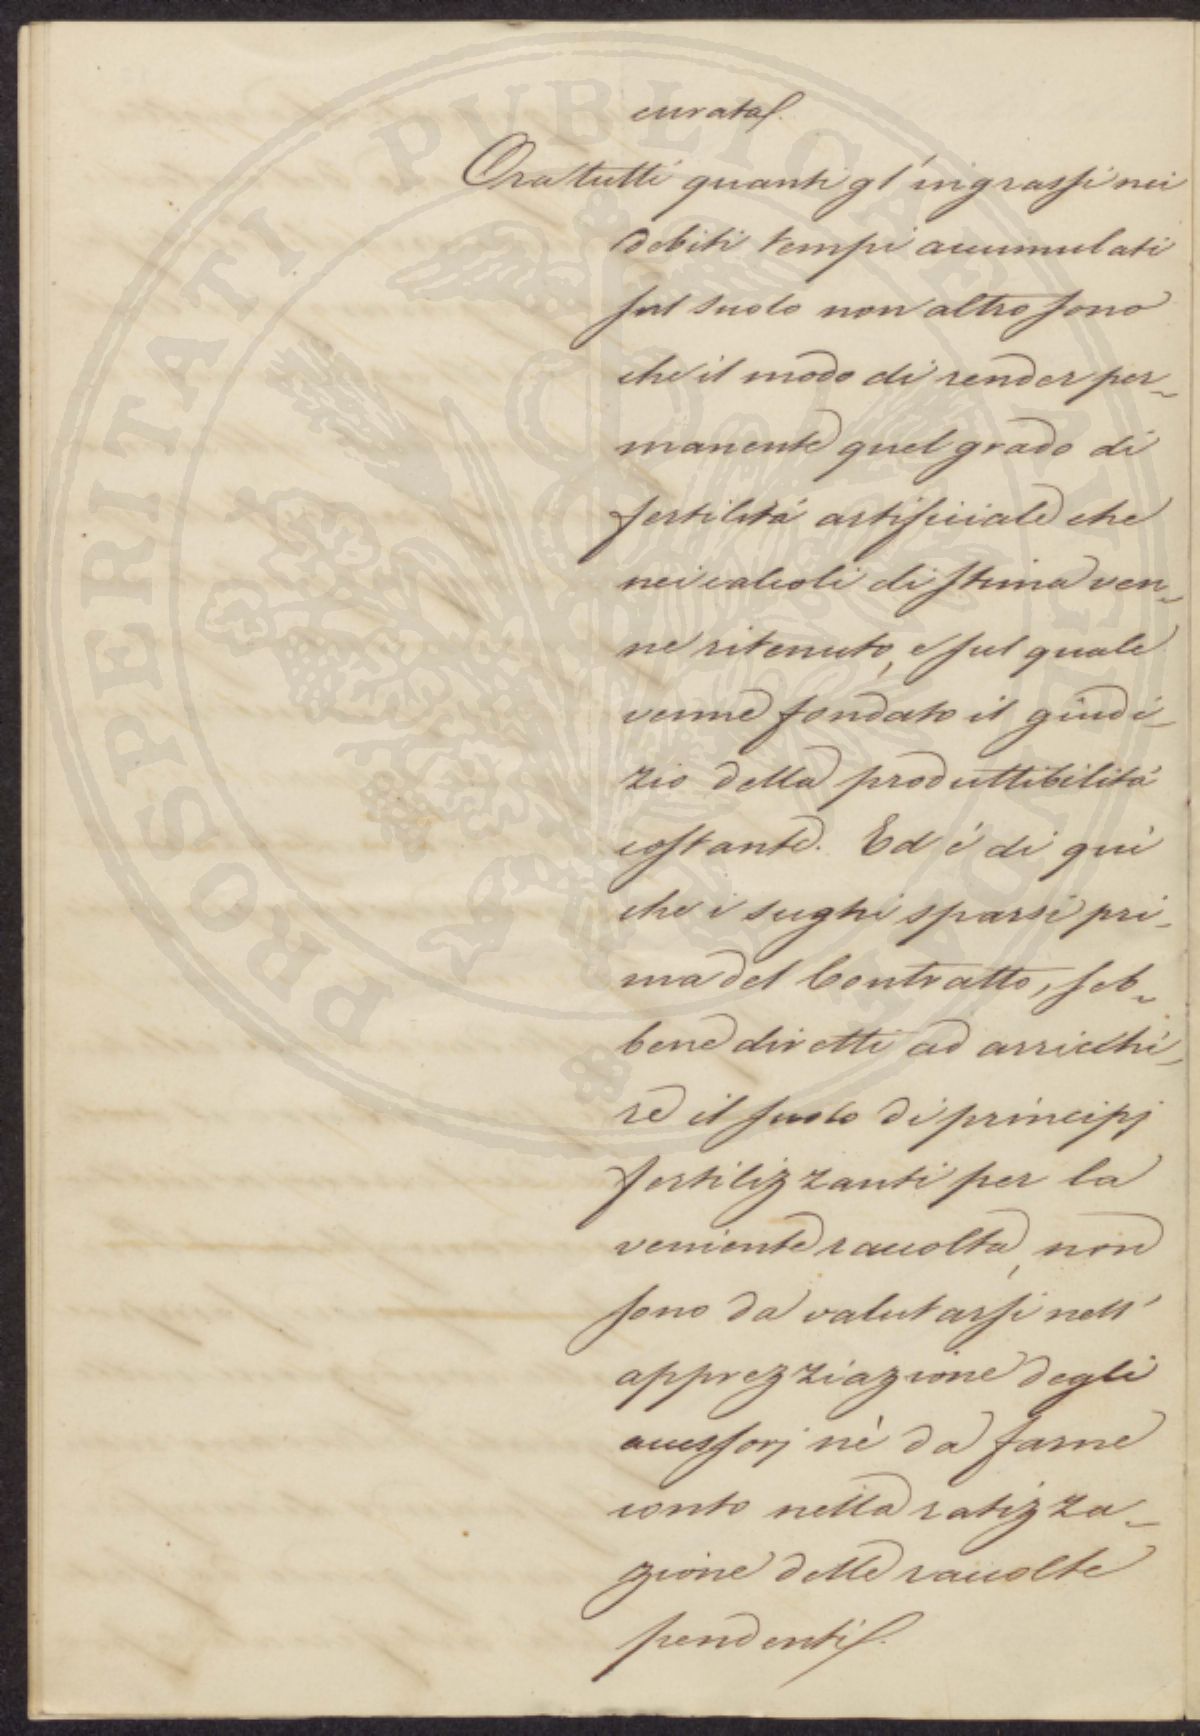 curata.
Ora tutti quanti gl'ingrassi nei
debiti tempi accumulati
sul suolo non altro sono
che il modo di render per-
manente quel grado di
fertilitá artificiale che
nei calcoli di stima ven-
ne ritenuto, e sul quale
venne fondato il giudi-
zio della produttibilitá
costante. Ed é di quì
che i sughi sparsi pri-
ma del Contratto, seb-
bene diretti ad arricchi-
re il suolo di principj
fertilizzanti per la
veniente raccolta, non
sono da valutarsi nell'
apprezziazione degli
accessorj nè da farne
conto nella ratizza-
zione delle raccolte
pendenti.
PROSPERITATI PUBLICAE AUGENDAE